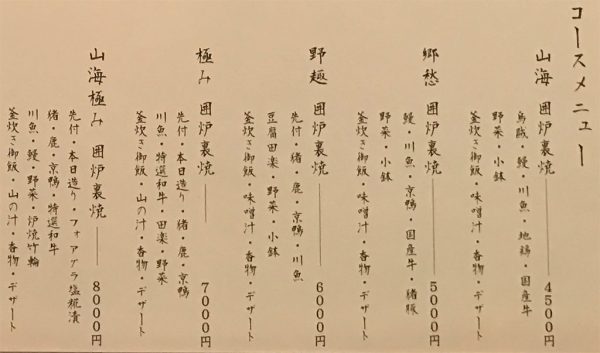 コースメニュー
山海 囲炉裏焼 ――― 4500円
烏賊・鰻・川魚・地鶏・国産牛
野菜・小鉢
釜炊き御飯・味噌汁・香物・デザート
郷愁 囲炉裏焼 ――― 5000円
鰻・川魚・京鴨・国産牛・猪豚
野菜・小鉢
釜炊き御飯・味噌汁・香物・デザート
野趣 囲炉裏焼 ――― 6000円
先付・猪・鹿・京鴨・川魚
豆腐田楽・野菜・小鉢
釜炊き御飯・味噌汁・香物・デザート
極み 囲炉裏焼 ――― 7000円
先付・本日造り・猪・鹿・京鴨
川魚・特選和牛・田楽・野菜
釜炊き御飯・山の汁・香物・デザート
山海極み 囲炉裏焼 ――― 8000円
先付・本日造り・フォアグラ塩糀漬
猪・鹿・京鴨・特選和牛
川魚・鰻・野菜・炉焼竹輪
釜炊き御飯・山の汁・香物・デザート